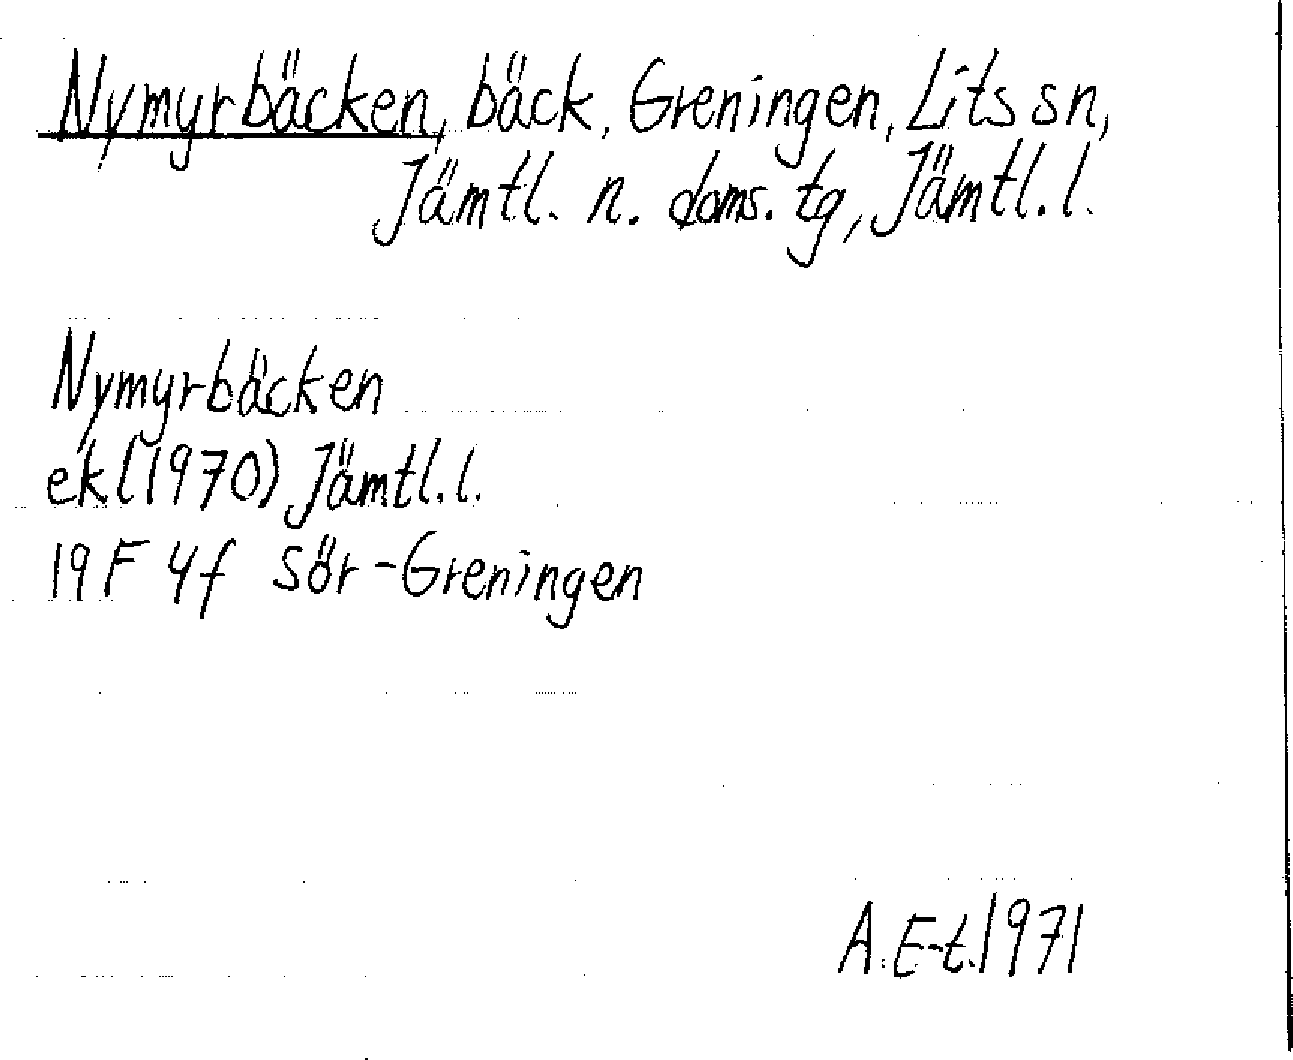 Nymyrbäcken, bäck, Greningen, Lits sn,
Jämtl. n. doms. tg, Jämtl. l.
Nymyrbäcken
ek (1970) Jämtl. l.
19 F 4f Sör-Greningen
A. E-t. 1971